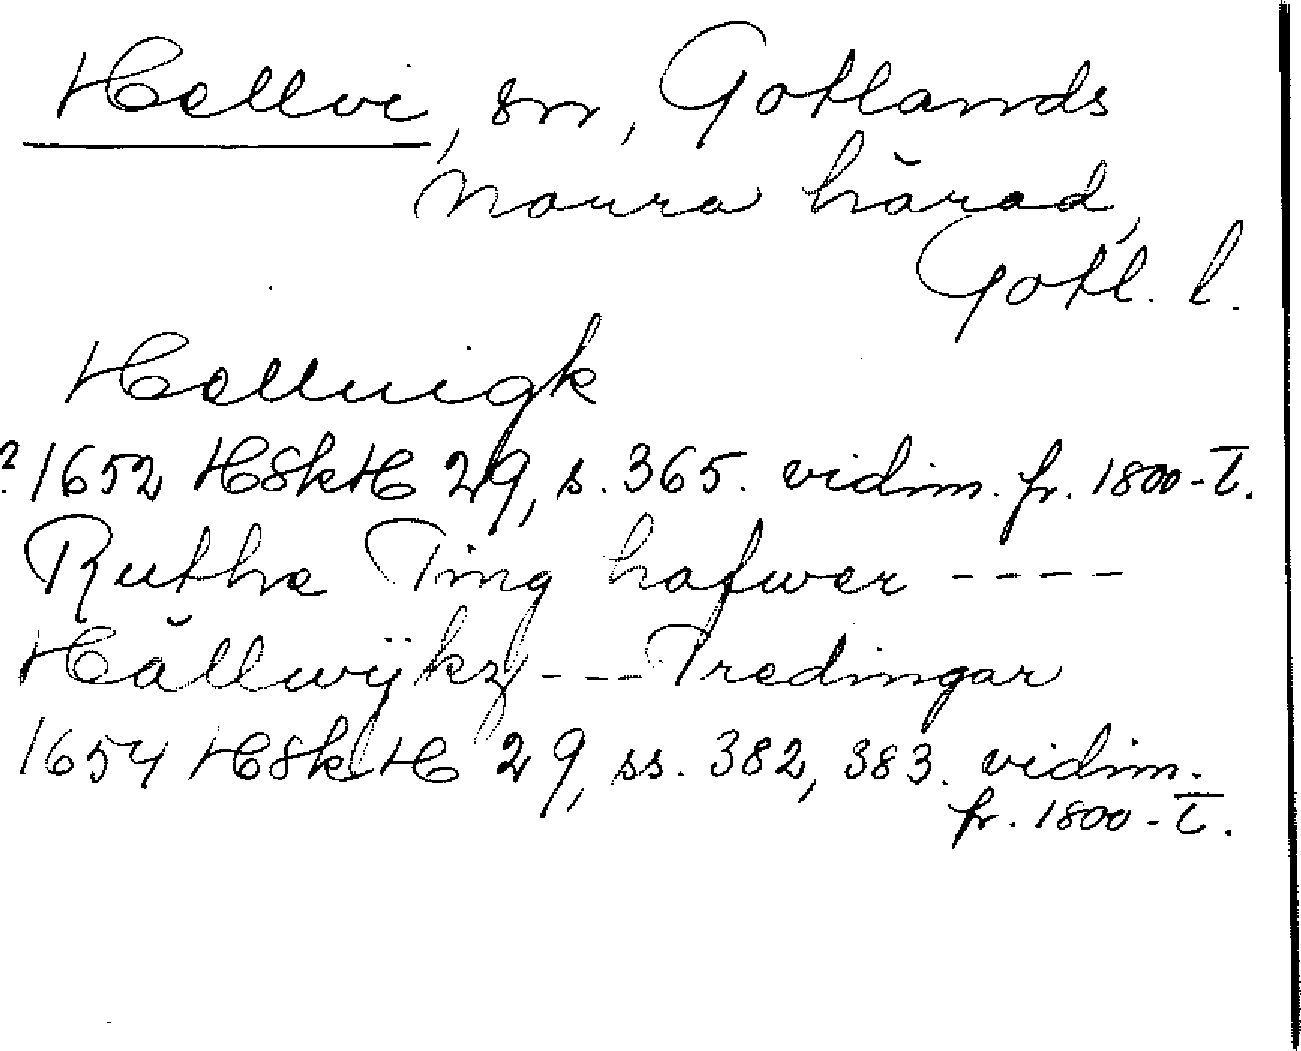 Hellvi, sn, Gotlands
norra härad,
Gotl. l.
Helluigk
? 1652 HSkH 29, s. 365. vidim. fr. 1800-t.
Ruthe Ting hafwer ----
Hällwÿkz --- Tredingar
1654 HSkH 29, ss. 382, 383. vidim.
fr. 1800-t.